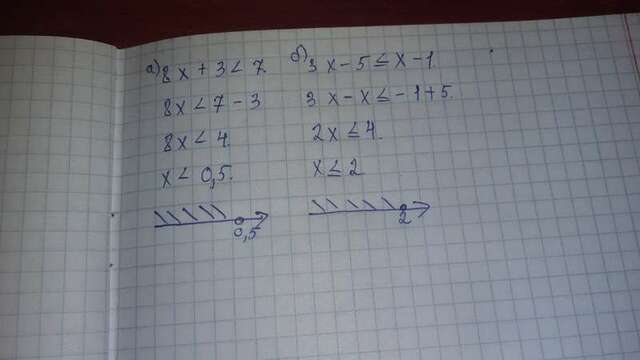 а) 8x + 3 < 7.
8x < 7 - 3
8x < 4.
x < 0,5.
0,5
б) 3x - 5 ≤ x - 1
3x - x ≤ - 1 + 5.
2x ≤ 4.
x ≤ 2
2